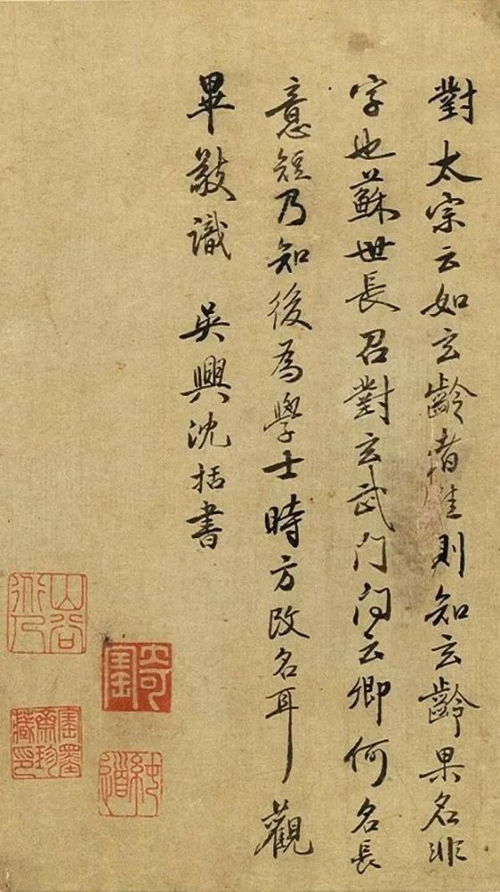 對太宗云如玄齡者佳則知玄齡果名非
字也蘇世長召對玄武門问云卿何名長
意短乃知後為學士時方改名耳 觀
畢敬識 吳興沈括書
山谷